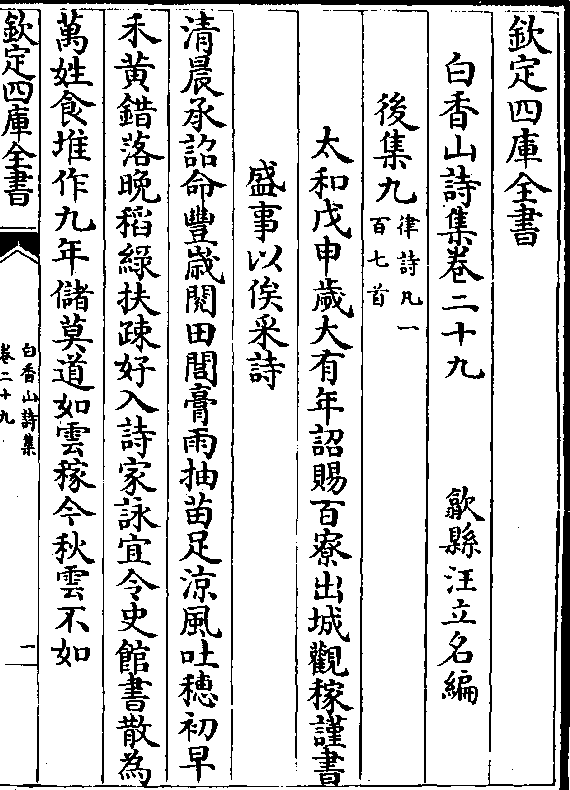 欽定四庫全書
白香山詩集卷二十九　歙縣汪立名編
後集九律詩凡一
百七首
太和戊申歲大有年詔賜百寮出城觀稼謹書
盛事以俟采詩
清晨承詔命豐歲閱田閭膏雨抽苗足涼風吐穗初早
禾黄錯落晚稻綠扶踈好入詩家詠宜令史館書散為
萬姓食堆作九年儲莫道如雲稼今秋雲不如
欽定四庫全書
白香山詩集
卷二十九
一